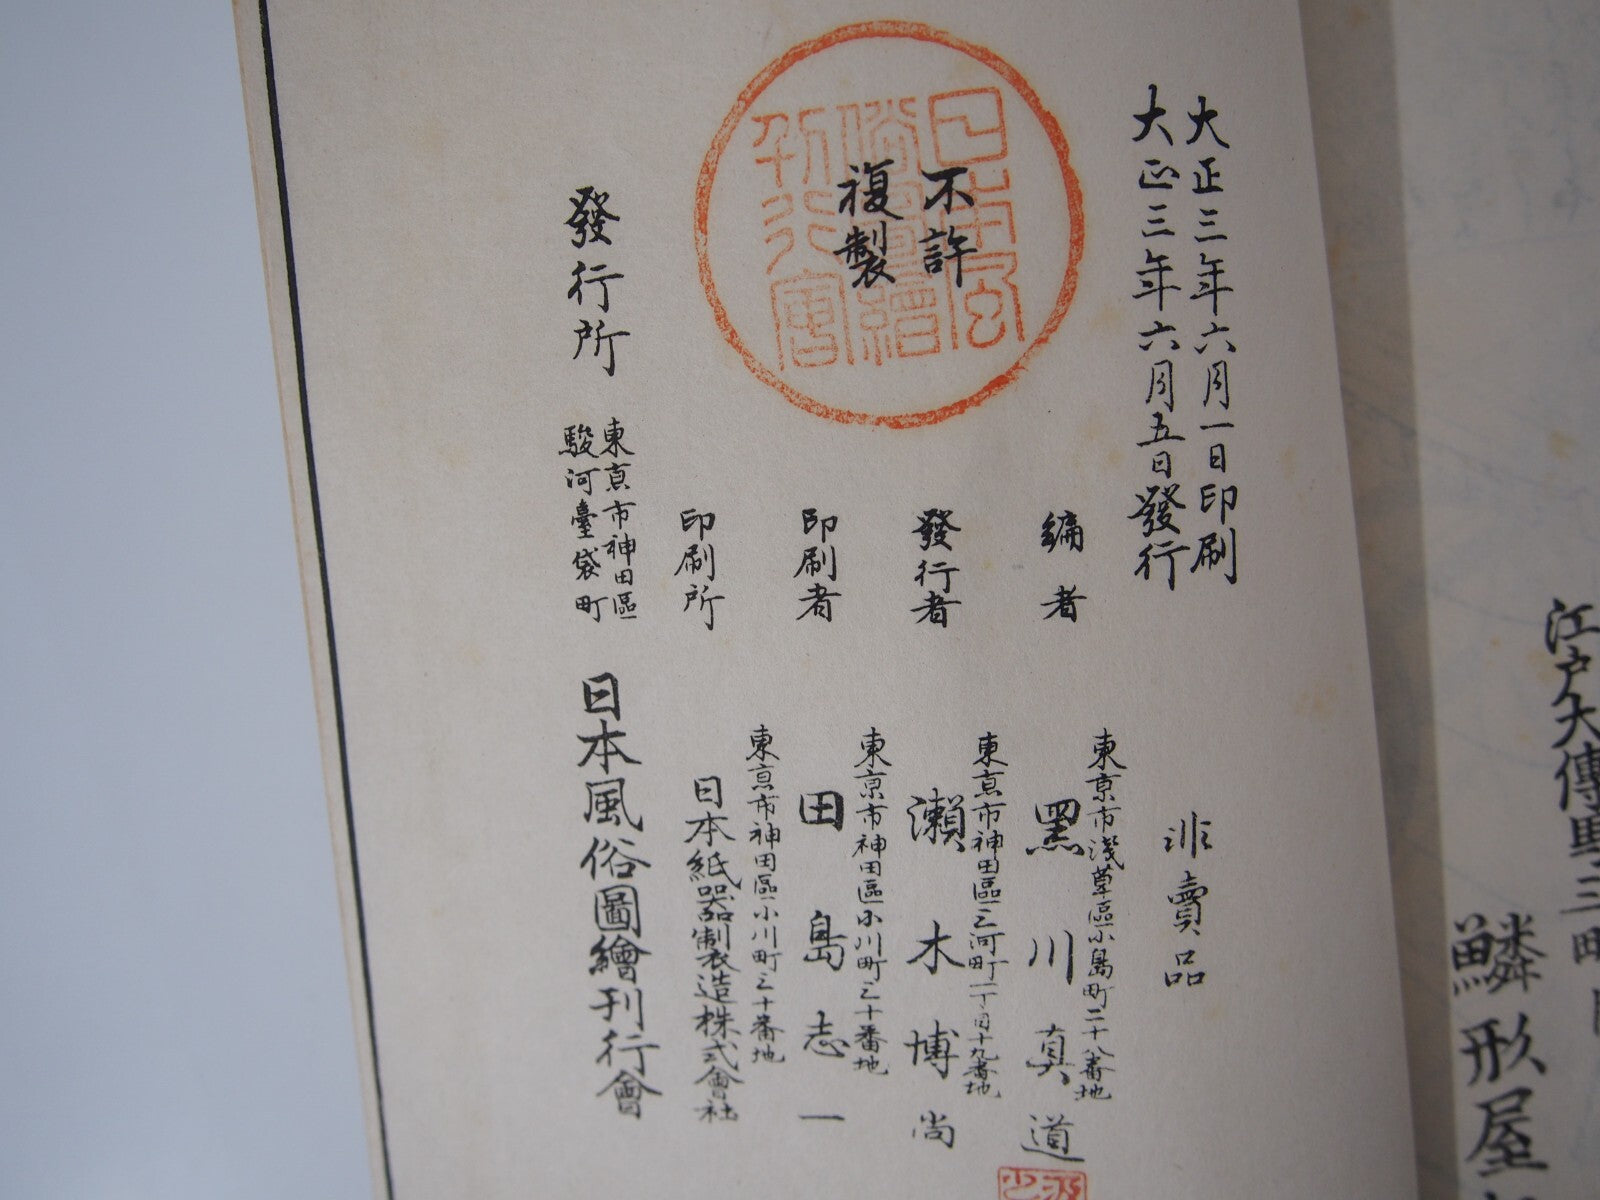 江戸大傳馬三町
鱗形屋
大正三年六月一日印刷
大正三年六月五日發行
非賣品
不許
複製
日本風
俗圖繪
刊行會
編者
東京市淺草區小島町二十八番地
黑川真道
發行者
東京市神田區三河町一丁目十九番地
瀨木博尚
印刷者
東京市神田區小川町三十番地
田島志一
印刷所
東京市神田區小川町三十番地
日本紙器製造株式會社
發行所
東京市神田區
駿河臺袋町
日本風俗圖繪刊行會